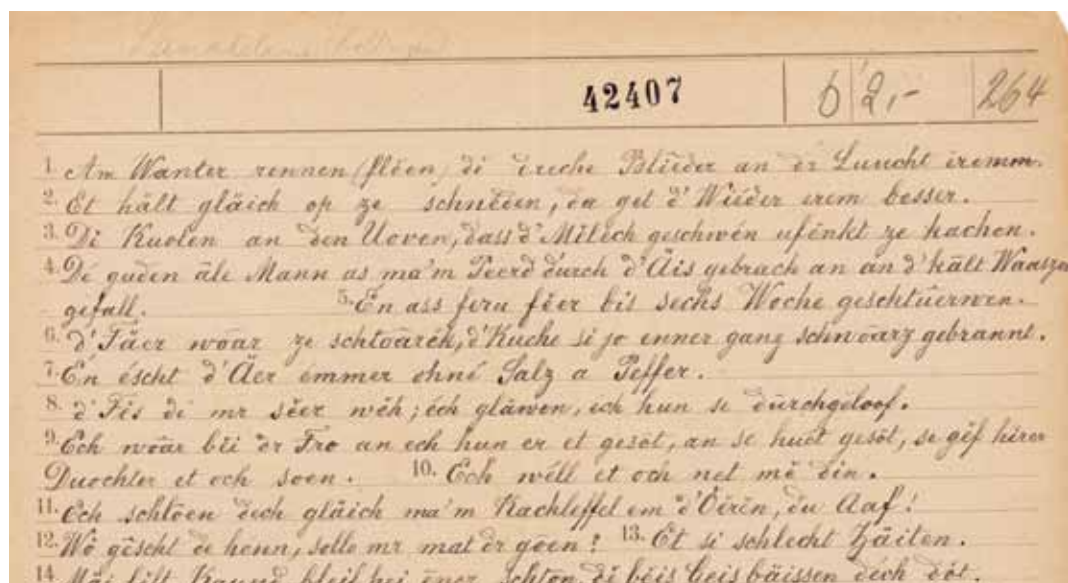 42407 6 2,- 264
1. Am Wanter rennen (fléen) di dreche Blieder an dr Luucht eremm.
2. Et hält gläich op ze schneien, da get d'Wieder erem besser.
3. Di Kuolen an den Uoven, dass d'Milech geschwén ufénkt ze kachen.
4. Dé guden ale Mann as ma'm Peerd durch d'Äis gebrach an an d'kält Waaszer
gefall. 5. En ass feru féer bis sechs Woche geschtuerwen.
6. d'Fäer woar ze schtoarék, d'Kuche si jo enner ganz schwoarz gebrannt.
7. En éscht d'Äer emmer ohné Salz a Peffer.
8. d'Féis di mr séer wéh; éch gläwen, ech hun se durchgeloof.
9. Ech woar bei dr Fro an ech hun er et gesot, an se huet gesot, se géf hirer
Duochter et och soen. 10. Ech wéll et och net mé din.
11. Ech schloen dech gläich ma'm Kachleffel em d'Oiren, du Aaf!
12. Wo géscht de henn, solle mr mat dr goen? 13. Et si schlecht Zäiten.
14. Mäi bleif hei énen schton, di béis Geis bäissen dech dot.